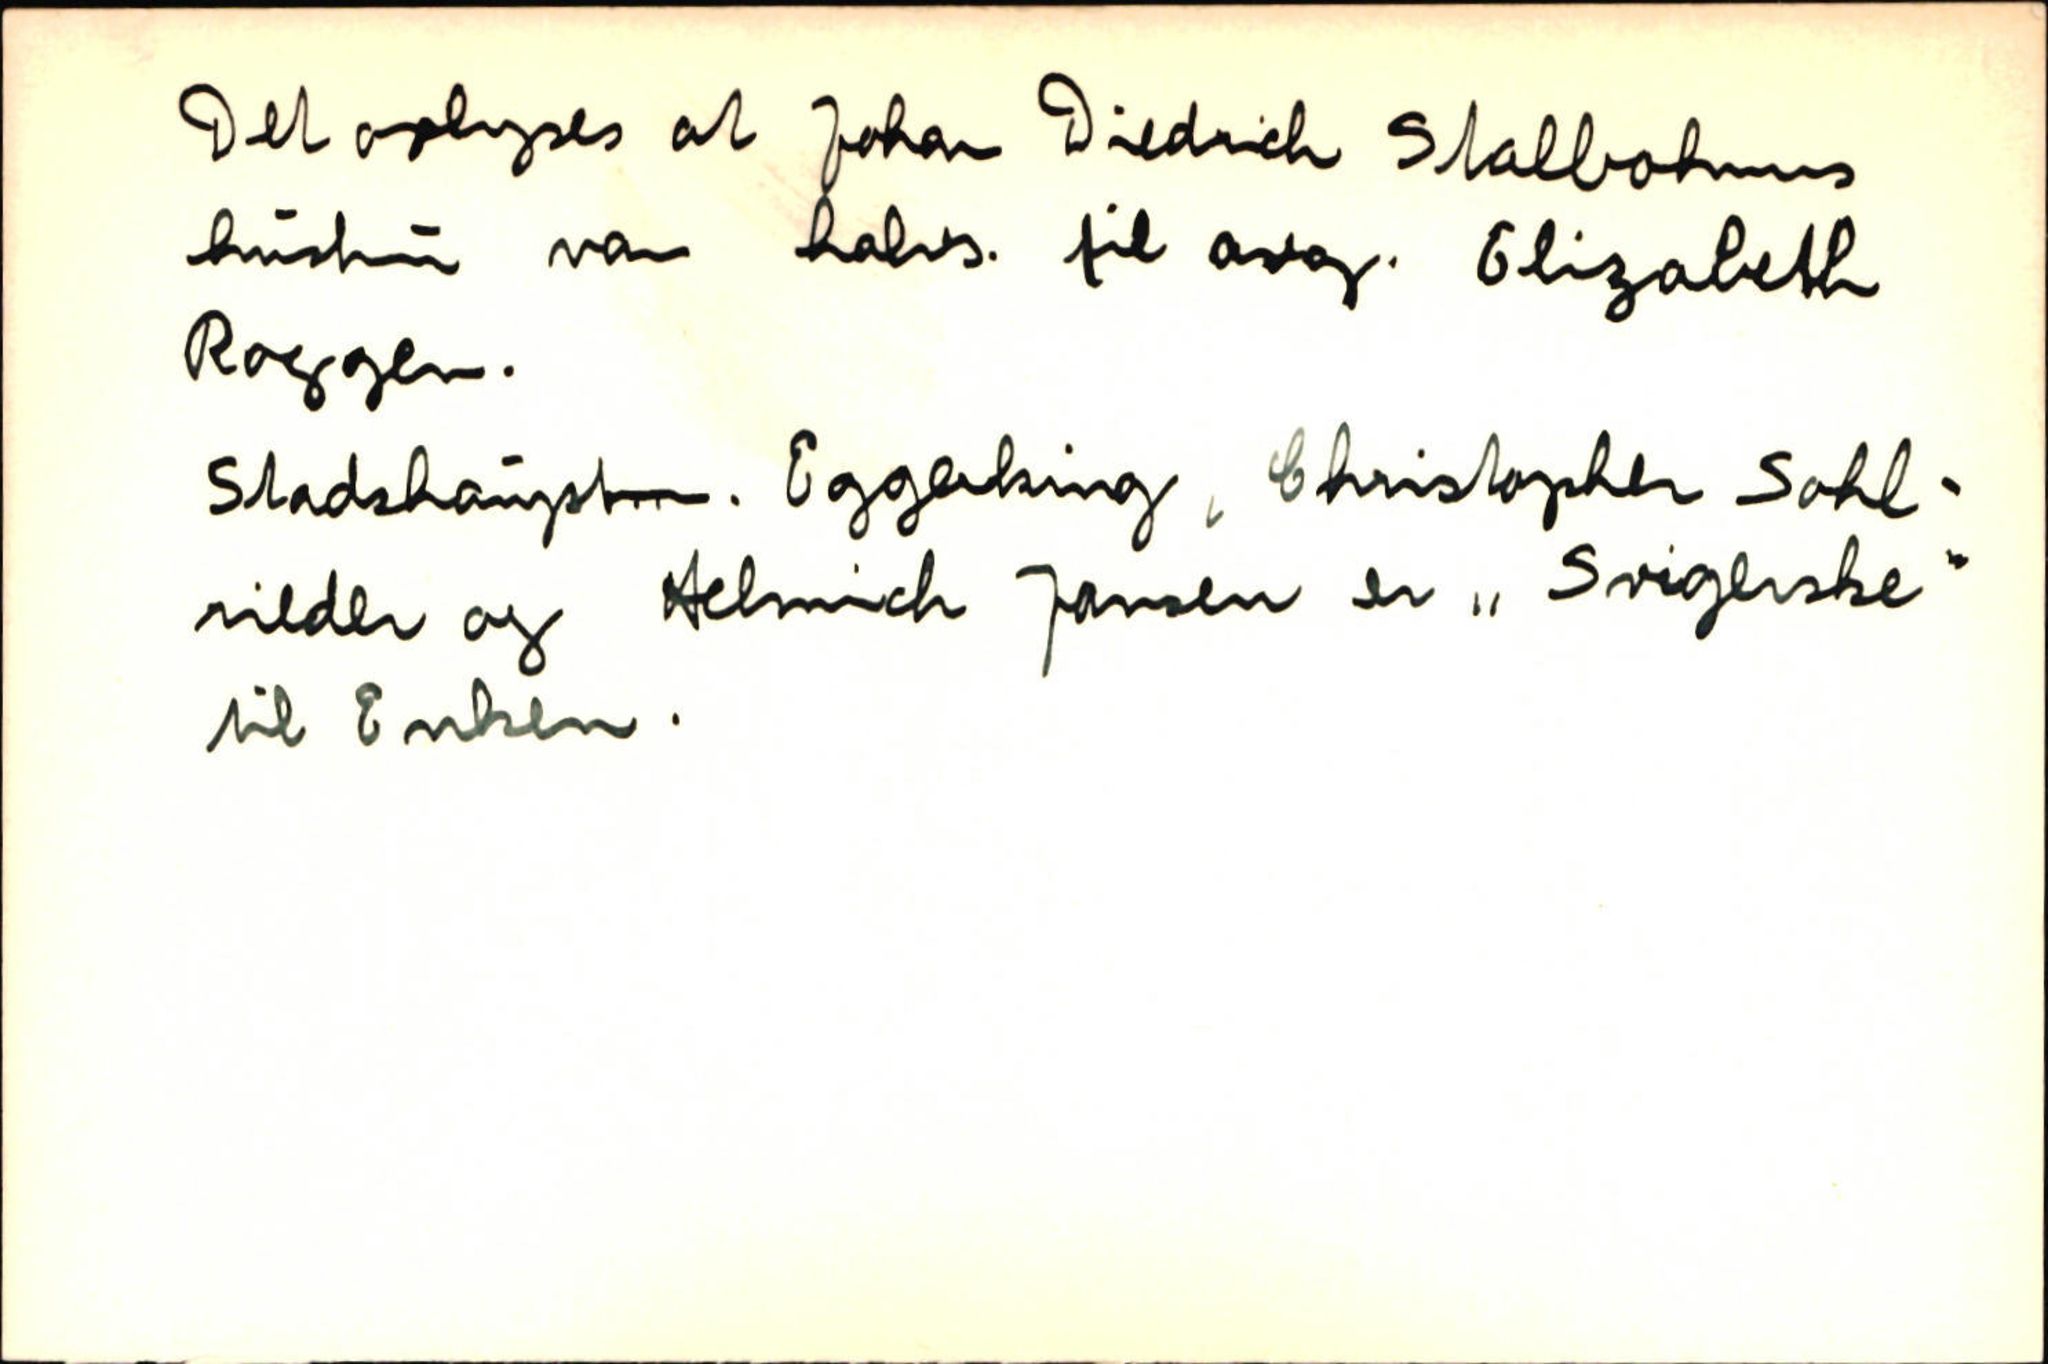 Det oplyses at Johan Diedrich Stalbohms
hustru var halvs. til avg. Elizabeth
Roggen.
Stadshauptm. Eggerking, Christopher Sohl-
vieder og Helmich Jansen er „Svigerske"
til Enken.